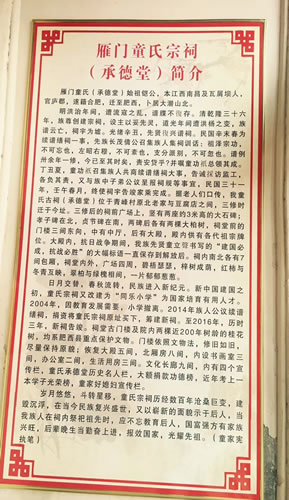 雁门童氏宗祠
（承德堂）简介
雁门童氏（承德堂）始祖铠公，本江西南昌及瓦屑坝人，
官庐郡，遂籍合肥，迁至肥西，卜居大潜山北。
明洪治年间，遭流寇之乱，谱牒不存。清乾隆三十六
年，族尊创建宗祠，设主以妥先灵，道光年间遭洪杨之变，族
谱云亡，祠宇为墟。光绪辛丑，先贤复兴谱祠。民国辛未春为
续谱缮祠一事，先族长茂德公召集族人集祠训话：祖泽宗功，
不可忘也，左昭右穆，不可紊也，支分派别，不可忽也。谱例
卅余年一修，今已至其时矣，责安贷乎？并嘱童功祗总领其成。
丁丑夏，童功祗召集族人共商续谱缮祠大事，告诫祠访监工，
各负其责，又与族中子弟公议呈报祠规等事宜，民国三十一
年，壬午春月，终使祠宇告竣家乘完成。据老人们口传，我童
氏古祠（承德堂）位于青峰村原北老家与豆腐店之间，三修时
迁于今址。三修后的祠前广场上，竖有两座约3米高的大石碑：
孝子碑在北，贞节碑在南，两碑后各有两棵大柏树，祠堂前的
门楼三间东向，中有中厅，后有大殿，殿内供有各代祖宗牌
位。大殿内，抗日战争期间，我族先贤童立任书写的“建国必
成，抗战必胜”的大幅标语一直保存到解放后。祠内南北各有7
间包厢。祠堂内外，广场四周，碧梧瑟瑟，梓树成荫，红柿与
冬青互映，翠柏与绿槐相间，一片郁郁葱葱。
日月交替，春秋流转，民族进入新纪元。新中国建国之
初，童氏宗祠又改建为“同乐小学”为国家培育有用人才。
2004年，因教育发展需要，小学撤离。2014年族人公议续谱
缮祠，捐资将童氏宗祠原址买下，筹建新祠。至2016年，历时
三年，新祠告竣。祠堂古门楼及院内两棵近200年树龄的桂花
树，均系肥西县重点保护文物。门楼依照文物法，修旧如旧，
尽量保持原貌；恢复大殿五间，北厢房八间，内设书画室三
间，办公室二间，生活用房三间。文化长廊九间，内有四个宣
传栏，童氏承德堂历史名人栏，大额捐款功德榜，近年考上一
本学子光荣榜，童家好媳妇宣传栏。
岁月悠悠，斗转星移，童氏宗祠历经数百年沧桑巨变，建
毁沉浮，在当今民族复兴盛世，又以崭新的面貌示于后人，当
我族人在祠内祭祀祖先时，应不忘教育后人，国富强方有家族
兴旺，后辈晚生当勤奋上进，报效国家，光耀先祖。（童家宪
执笔）